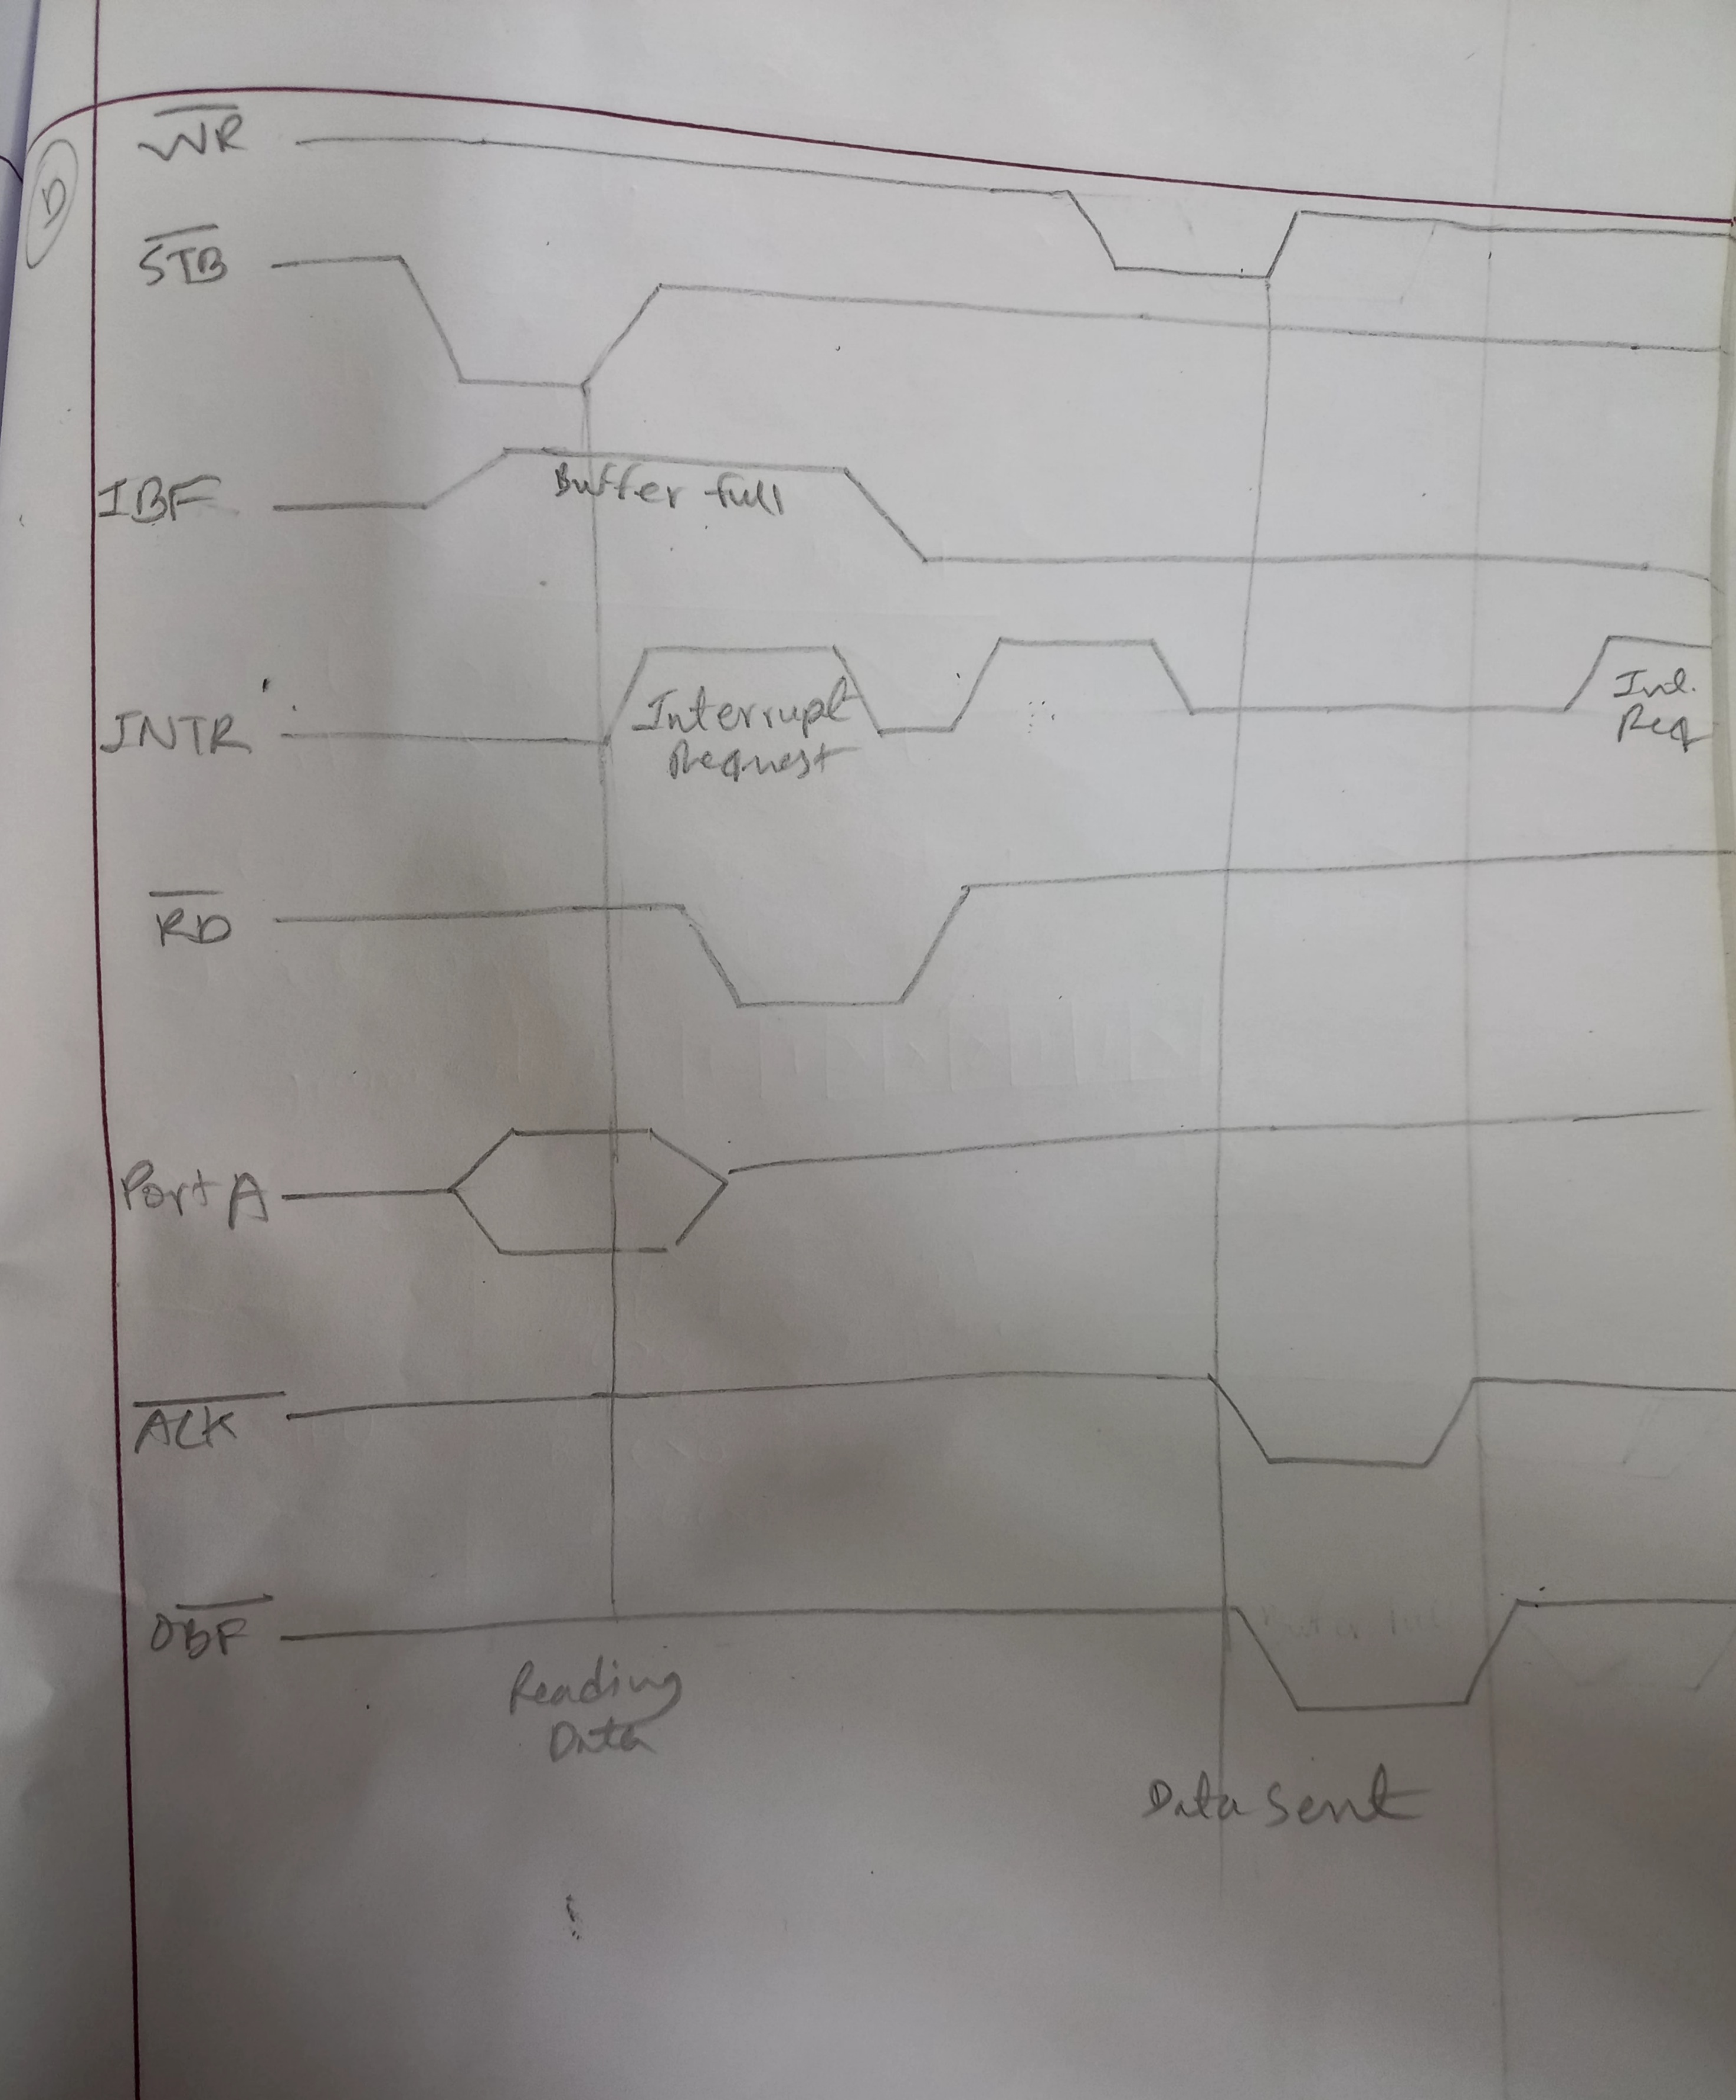 D
W̅R̅
S̅T̅B̅
IBF
Buffer full
INTR
Interrupt
Request
Int.
Req
R̅D̅
Port A
A̅C̅K̅
O̅B̅F̅
Reading
Data
Data sent